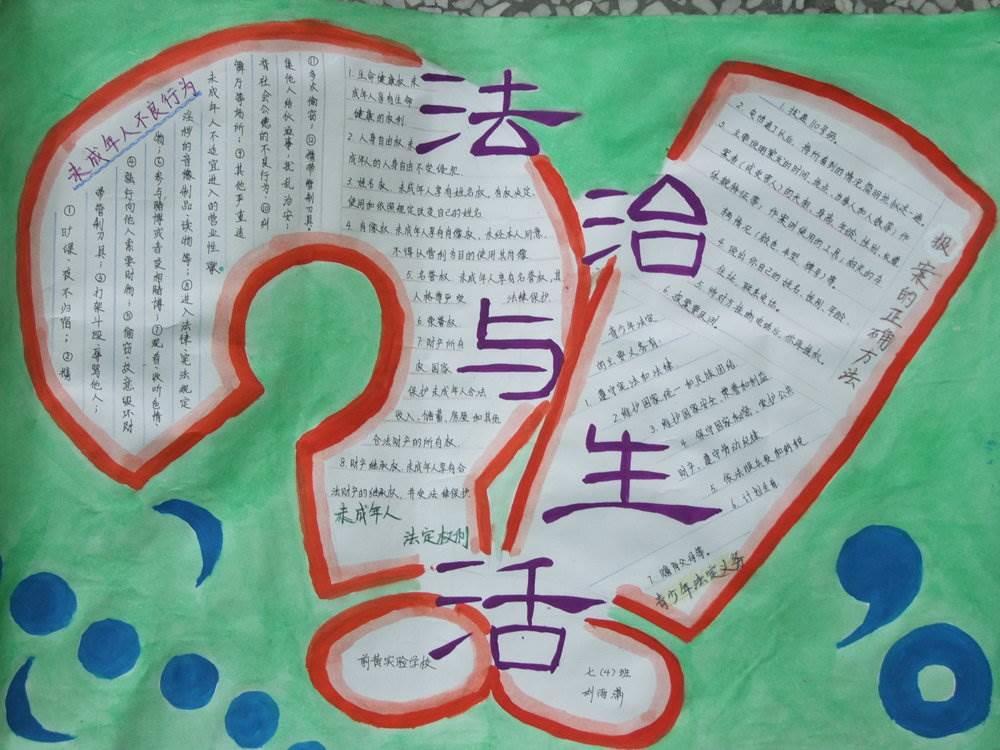 法
治
与
生
活
未成年人不良行为
①旷课、夜不归宿;②携
带管制刀具;③打架斗殴、辱骂他人;
④强行向他人索要财物;⑤偷窃、故意毁坏财
物;⑥参与赌博或者变相赌博;⑦观看、收听色情、
淫秽的音像制品、读物等;⑧进入法律、宪法规定
未成年人不适宜进入的营业性歌
舞厅等场所;⑨其他严重违
背社会公德的不良行为⑩纠
集他人结伙滋事,扰乱治安;
⑪多次偷窃;⑫携带管制刀具。
1.生命健康权.未
成年人享有生命
健康的权利
2.人身自由权.未
成年人的人身自由不受侵犯
3.姓名权.未成年人享有姓名权,有权决定、
使用和依照规定改变自己的姓名
4.肖像权.未成年人享有肖像权,未经本人同意,
不得以营利为目的使用其肖像
5.名誉权.未成年人享有名誉权,其
人格尊严受 法律保护
6.荣誉权
7.财产所有
权.国家
保护未成年人合法
收入、储蓄、房屋和其他
合法财产的所有权
8.财产继承权.未成年人享有合
法财产的继承权,并受法律保护
未成年人
法定权利
报案的正确方法
1.拨通110号码。
4.说出你自己的姓名、性别、年龄、
住址、联系电话。
6.放置警民词。
青少年法定
的主要义务有:
1.遵守宪法和法律
2.维护国家统一和民族团结
3.维护国家安全、荣誉和利益
4.保守国家秘密、爱护公共
财产、遵守劳动纪律
5.依法服兵役和纳税
6.计划生育
7.赡养父母等。
青少年法定义务
前黄实验学校
七(4)班